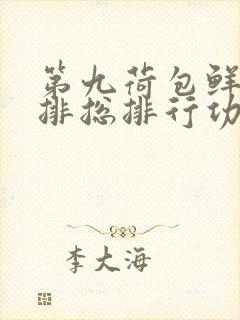 第九荷包鲜
排总排行功
李大海